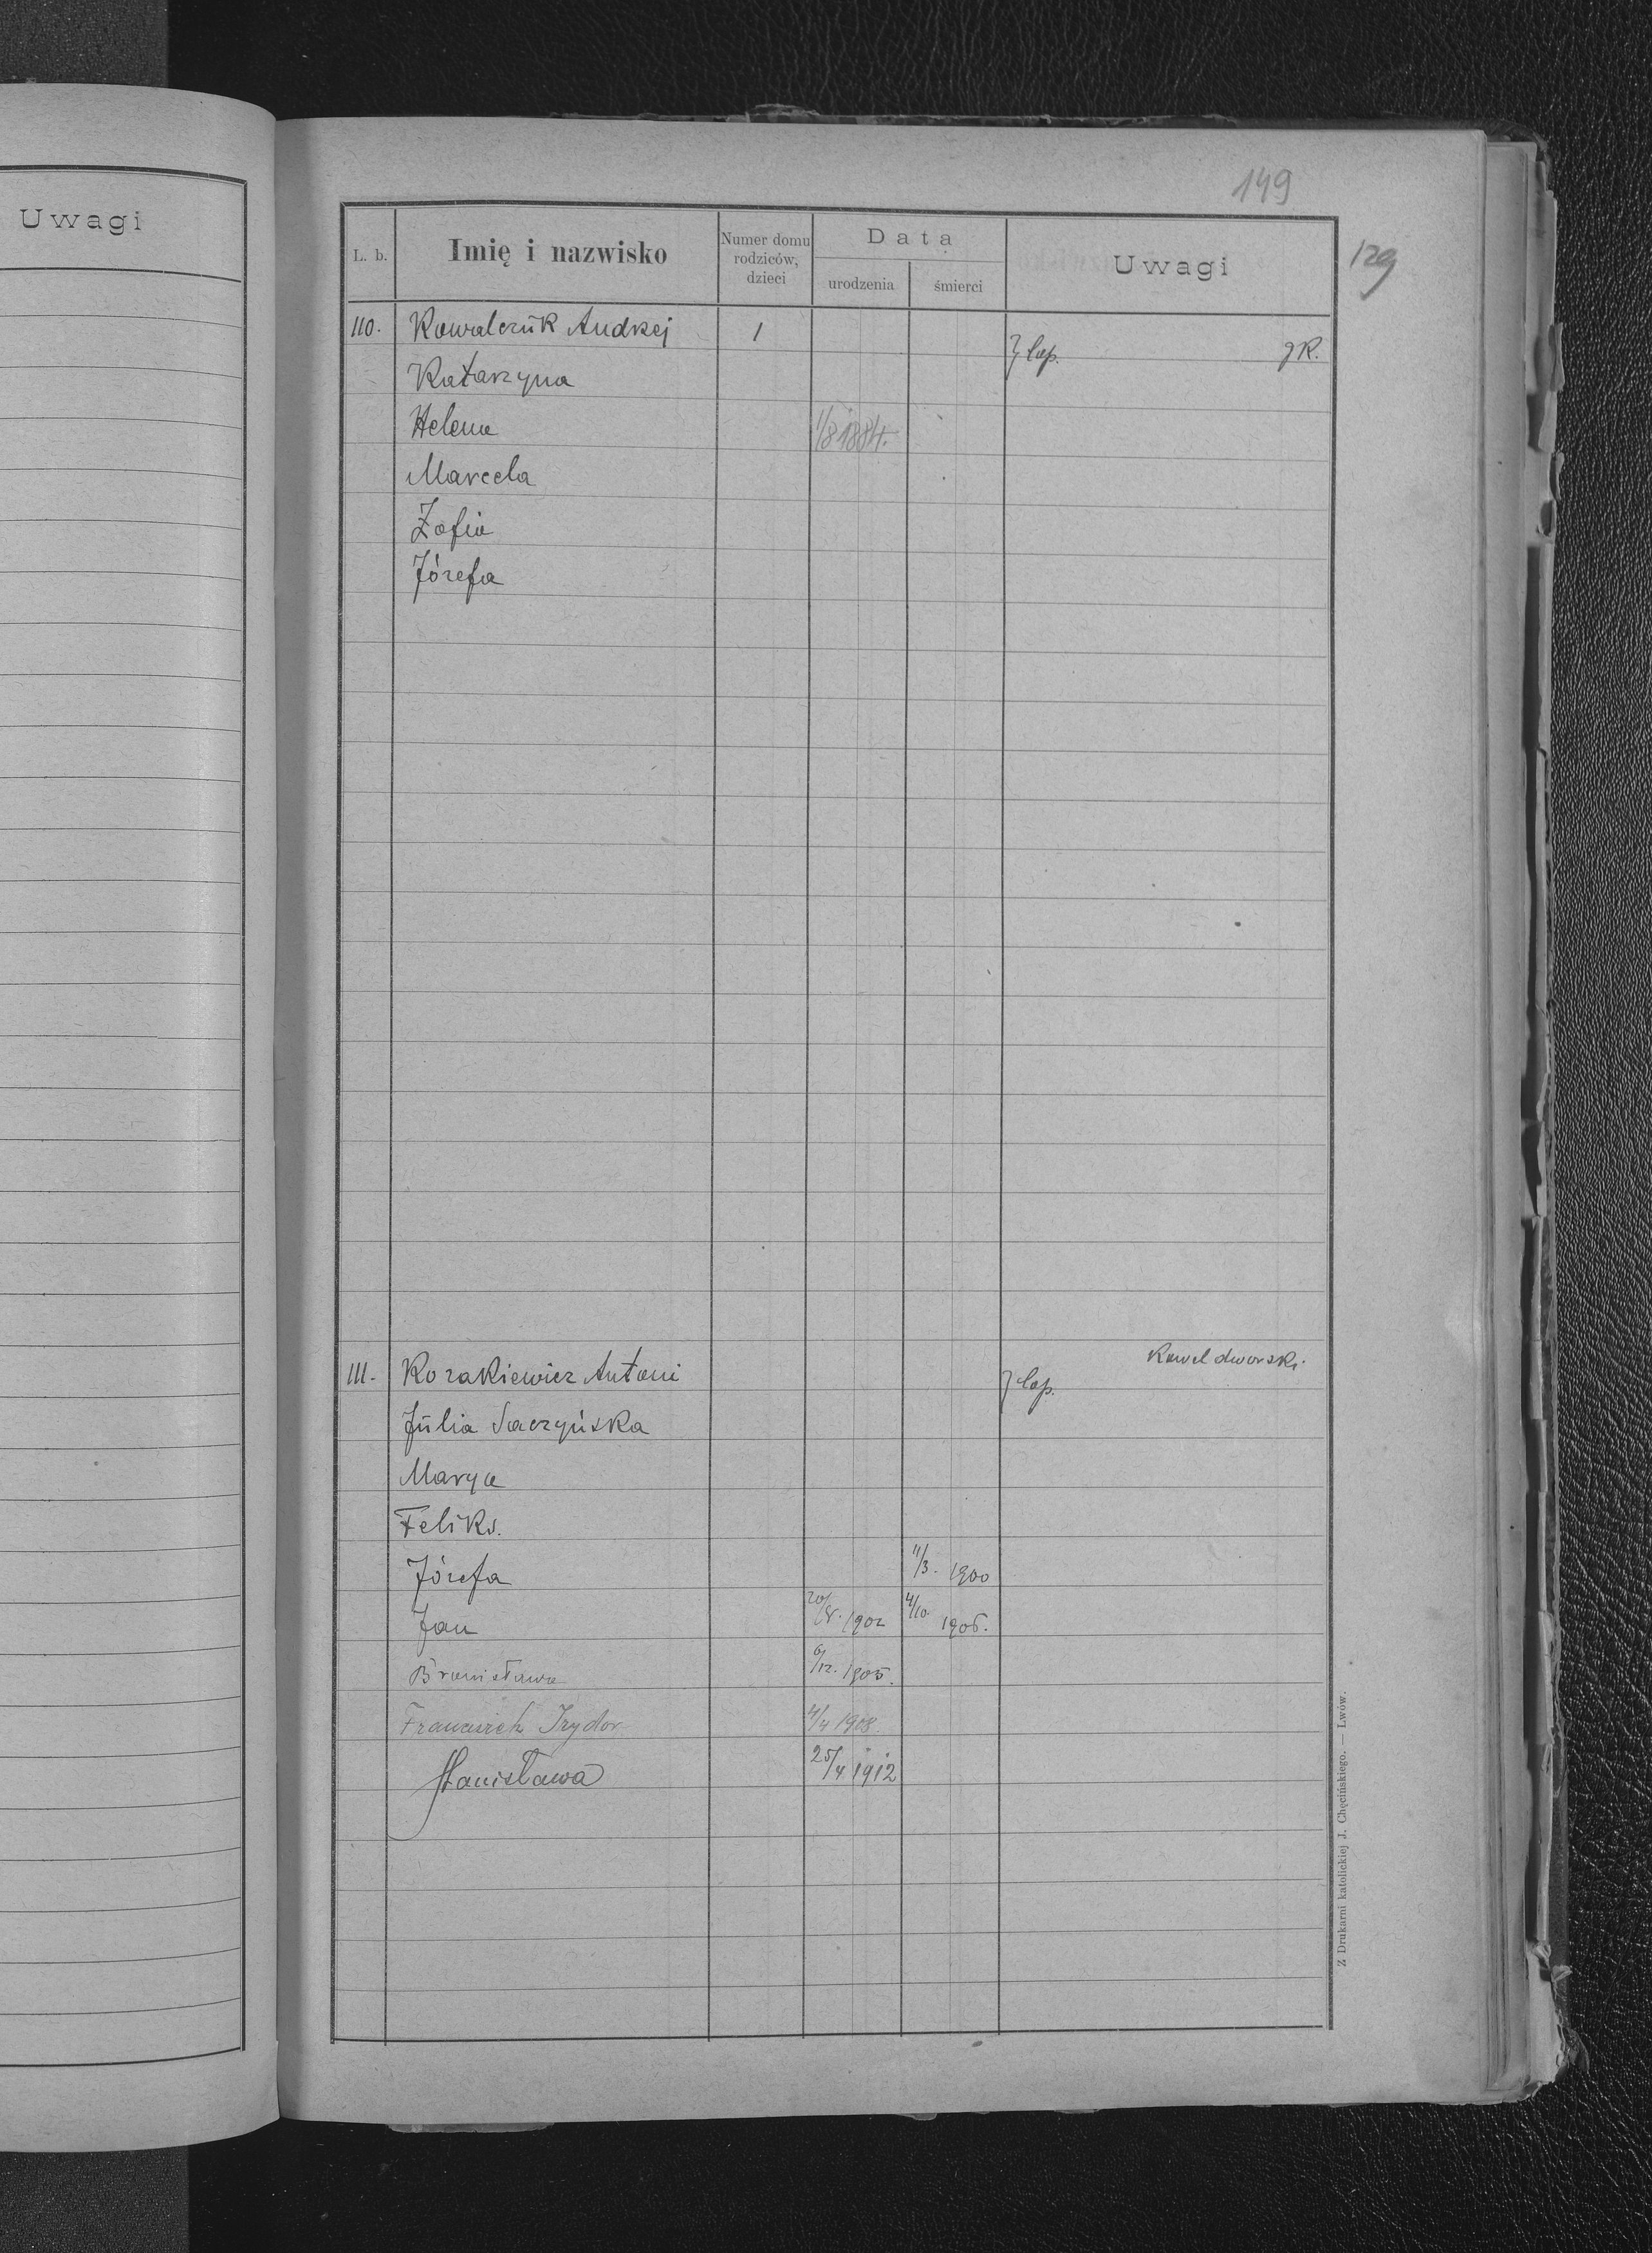 Uwagi
149
129
L. b. Imię i nazwisko Numer domu rodziców, dzieci Data urodzenia śmierci Uwagi
110. Kowalczuk Andrzej 1 łap. gR.
Katarzyna
Helena 1/8 1884.
Marcela
Zofia
Józefa
Kowal dworski.
111. Kozakiewicz Antoni łap.
Julia Saczyńska
Marya
Feliks.
Józefa 11/3. 1900
Jan 20/8. 1902 4/10. 1906.
Bronisława 6/12. 1905.
Franciszek Izydor 4/4 1908.
Stanisława 25/4 1912
Z Drukarni katolickiej J. Chęcińskiego. — Lwów.